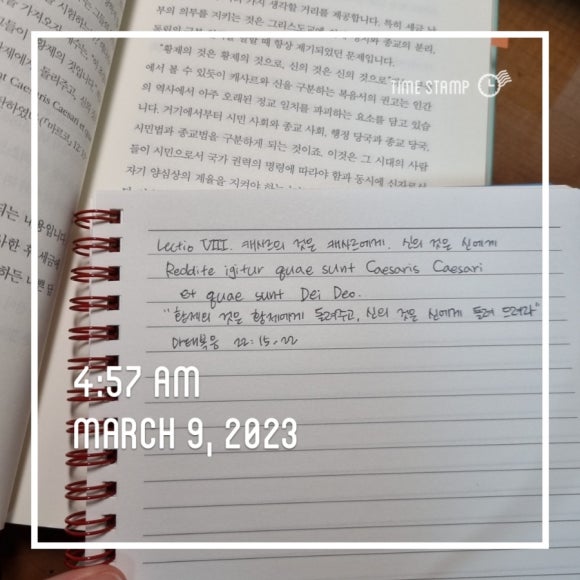 가 생각할 거리를 제공합니다. 특히 세금 납
부의 의무를 지키는 것은 그리스도교에
정치와 종교의 분리,
할 때 항상 제기되었던 문제입니다.
"황제의 것은 황제의 것으로, 신의 것은 신의 것으로"
에서 볼 수 있듯이 캐사르와 신을 구분하는 복음서의 권고는 인간
의 역사에서 아주 오래된 정교 일치를 파괴하는 요소를 담고 있습
니다. 거기에서부터 시민 사회와 종교 사회, 행정 당국과 종교 당국,
시민법과 종교법을 구분하게 되는 것이죠. 이것은 그 시대의 사람
들이 시민으로서 국가 권력의 명령에 따라야 함과 동시에 신자로서
자기 양심상의 계율을 지켜야
TIME STAMP
Lectio VIII. 캐사르의 것은 캐사르에게. 신의 것은 신에게
Reddite igitur quae sunt Caesaris Caesari
et quae sunt Dei Deo.
"황제의 것은 황제에게 돌려주고, 신의 것은 신에게 돌려 드려라"
마태복음 22:15-22
4:57 AM
MARCH 9, 2023
황제의 것입니다."
돌려주고,
Caesaris Caesari et
되는 내용입니다
후 세금
하든 나쁜 답